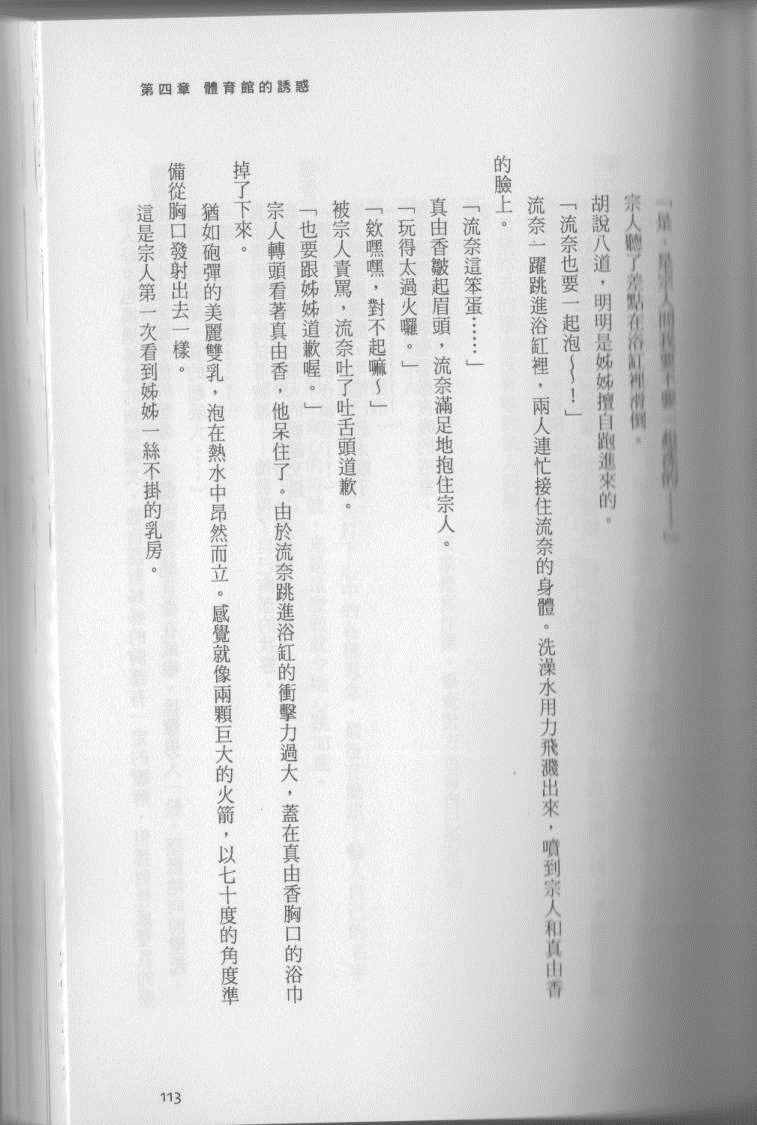 第四章 體育館的誘惑
宗人聽了差點在浴缸裡滑倒。
胡說八道，明明是姊姊擅自跑進來的。
「流奈也要一起泡～！」
流奈一躍跳進浴缸裡，兩人連忙接住流奈的身體。洗澡水用力飛濺出來，噴到宗人和真由香
的臉上。
「流奈這笨蛋……」
真由香皺起眉頭，流奈滿足地抱住宗人。
「玩得太過火囉。」
「欸嘿嘿，對不起嘛～」
被宗人責罵，流奈吐了吐舌頭道歉。
「也要跟姊姊道歉喔。」
宗人轉頭看著真由香，他呆住了。由於流奈跳進浴缸的衝擊力過大，蓋在真由香胸口的浴巾
掉了下來。
猶如砲彈的美麗雙乳，泡在熱水中昂然而立。感覺就像兩顆巨大的火箭，以七十度的角度準
備從胸口發射出去一樣。
這是宗人第一次看到姊姊一絲不掛的乳房。
113